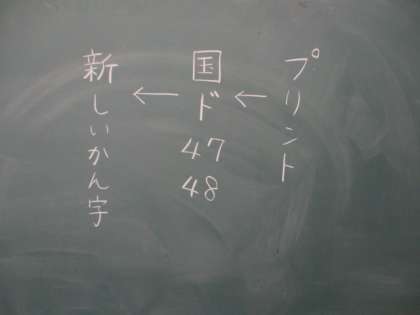 プリント
←
国ド 47 48
←
新しいかん字